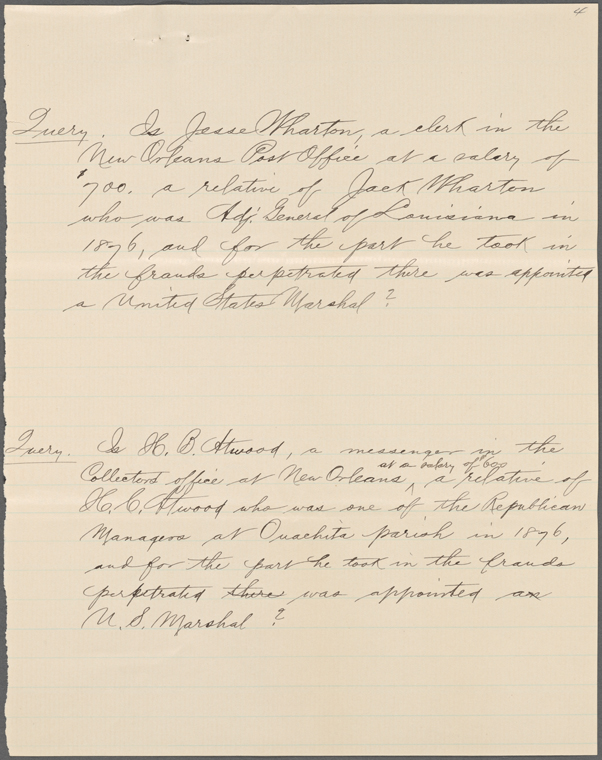 4
Query. Is Jesse Wharton, a clerk in the
New Orleans Post Office at a salary of
$700. a relative of Jack Wharton
who was Adj. General of Louisiana in
1876, and for the part he took in
the frauds perpetrated there was appointed
a United States Marshal?
Query. Is H. B. Atwood, a messenger in the
at a salary of 600
Collectors office at New Orleans, ^ a relative of
H. C. Atwood who was one of the Republican
Managers at Ouachita parish in 1876,
and for the part he took in the frauds
perpetrated there was appointed an
U. S. Marshal?